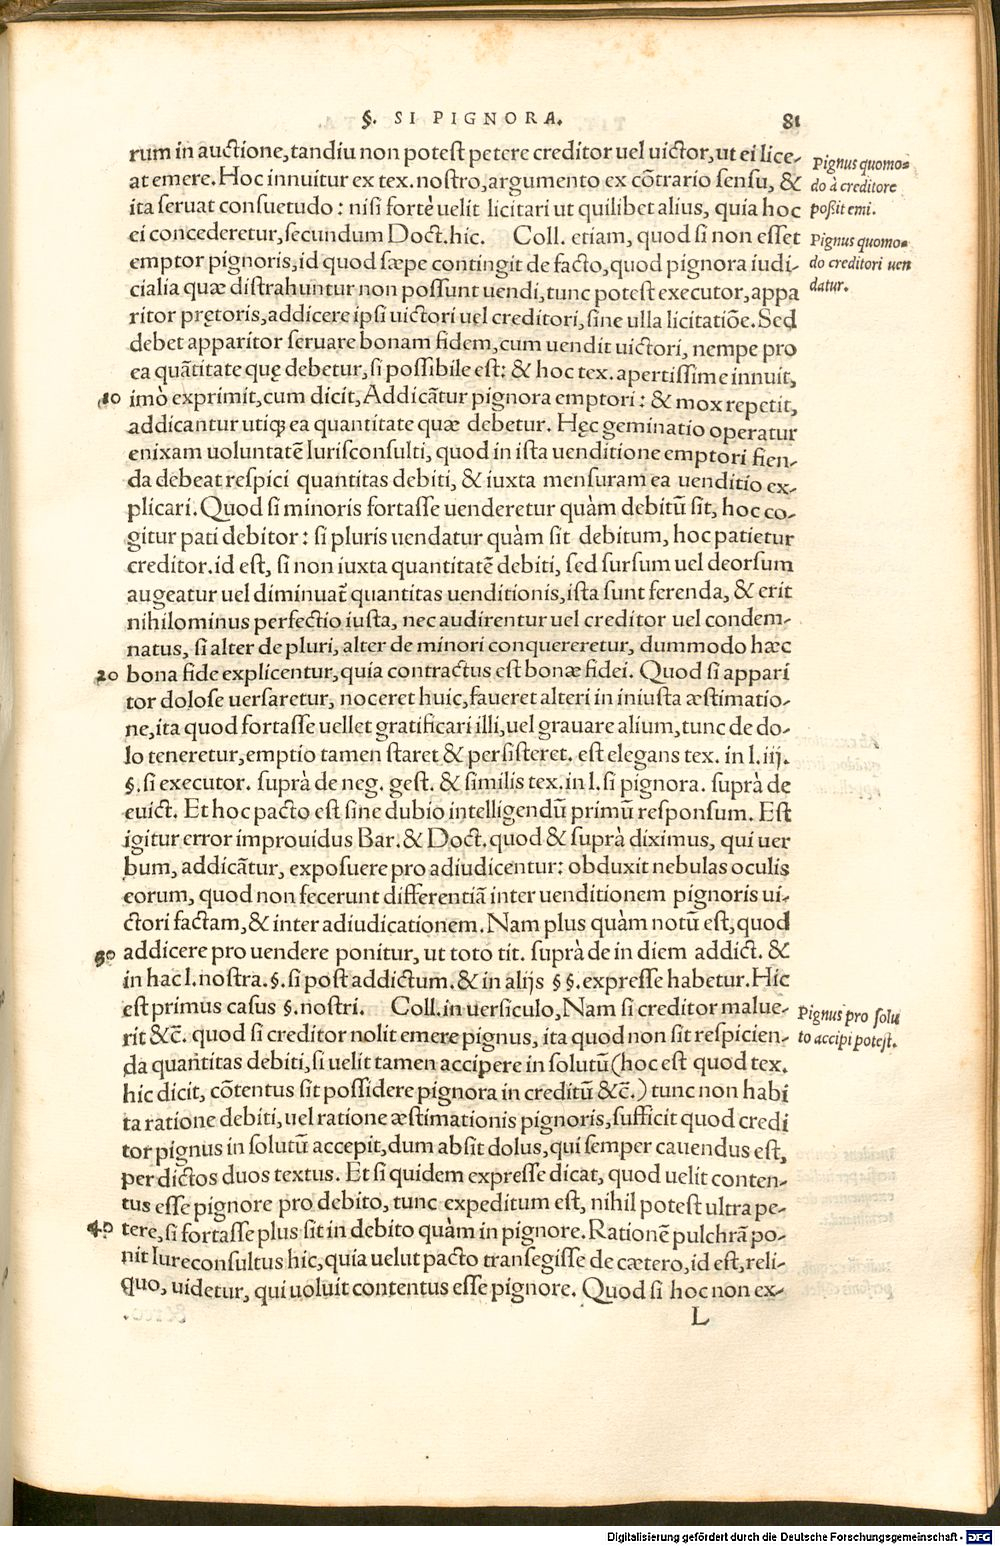 §. SI PIGNORA. 81
rum in auctione, tandiu non potest petere creditor uel uictor, ut ei lice-
at emere. Hoc innuitur ex tex. nostro, argumento ex cōtrario sensu, &
ita seruat consuetudo: nisi fortè uelit licitari ut quilibet alius, quia hoc
ei concederetur, secundum Doct. hic. Coll. etiam, quod si non esset
emptor pignoris, id quod sæpe contingit de facto, quod pignora iudi-
cialia quæ distrahuntur non possunt uendi, tunc potest executor, appa
ritor pretoris, addicere ipsi uictori uel creditori, sine ulla licitatiōe. Sed
debet apparitor seruare bonam fidem, cum uendit uictori, nempe pro
ea quātitate quę debetur, si possibile est: & hoc tex. apertissime innuit,
10 imò exprimit, cum dicit, Addicātur pignora emptori: & mox repetit,
addicantur utiq; ea quantitate quæ debetur. Hęc geminatio operatur
enixam uoluntatē Iurisconsulti, quod in ista uenditione emptori fien-
da debeat respici quantitas debiti, & iuxta mensuram ea uenditio ex-
plicari. Quod si minoris fortasse uenderetur quàm debitū sit, hoc co-
gitur pati debitor: si pluris uendatur quàm sit debitum, hoc patietur
creditor. id est, si non iuxta quantitatē debiti, sed sursum uel deorsum
augeatur uel diminuat̄ quantitas uenditionis, ista sunt ferenda, & erit
nihilominus perfectio iusta, nec audirentur uel creditor uel condem-
natus, si alter de pluri, alter de minori conquereretur, dummodo hæc
20 bona fide explicentur, quia contractus est bonæ fidei. Quod si appari
tor dolose uersaretur, noceret huic, faueret alteri in iniusta æstimatio-
ne, ita quod fortasse uellet gratificari illi, uel grauare alium, tunc de do-
lo teneretur, emptio tamen staret & persisteret. est elegans tex. in l. iij.
§. si executor. suprà de neg. gest. & similis tex. in l. si pignora. suprà de
euict. Et hoc pacto est sine dubio intelligendū primū responsum. Est
igitur error improuidus Bar. & Doct. quod & suprà diximus, qui uer
bum, addicātur, exposuere pro adiudicentur: obduxit nebulas oculis
eorum, quod non fecerunt differentiā inter uenditionem pignoris ui-
ctori factam, & inter adiudicationem. Nam plus quàm notū est, quod
30 addicere pro uendere ponitur, ut toto tit. suprà de in diem addict. &
in hac l. nostra. §. si post addictum. & in alijs §§. expresse habetur. Hic
est primus casus §. nostri. Coll. in uersiculo, Nam si creditor malue-
rit &c̄. quod si creditor nolit emere pignus, ita quod non sit respicien-
da quantitas debiti, si uelit tamen accipere in solutū (hoc est quod tex.
hic dicit, cōtentus sit possidere pignora in creditū &c̄.) tunc non habi
ta ratione debiti, uel ratione æstimationis pignoris, sufficit quod credi
tor pignus in solutū accepit, dum absit dolus, qui semper cauendus est,
per dictos duos textus. Et si quidem expresse dicat, quod uelit conten-
tus esse pignore pro debito, tunc expeditum est, nihil potest ultra pe-
40 tere, si fortasse plus sit in debito quàm in pignore. Rationē pulchrā po-
nit Iureconsultus hic, quia uelut pacto transegisse de cætero, id est, reli-
quo, uidetur, qui uoluit contentus esse pignore. Quod si hoc non ex-
L
Pignus quomo-
do à creditore
possit emi.
Pignus quomo-
do creditori uen
datur.
Pignus pro solu
to accipi potest.
Digitalisierung gefördert durch die Deutsche Forschungsgemeinschaft - DFG